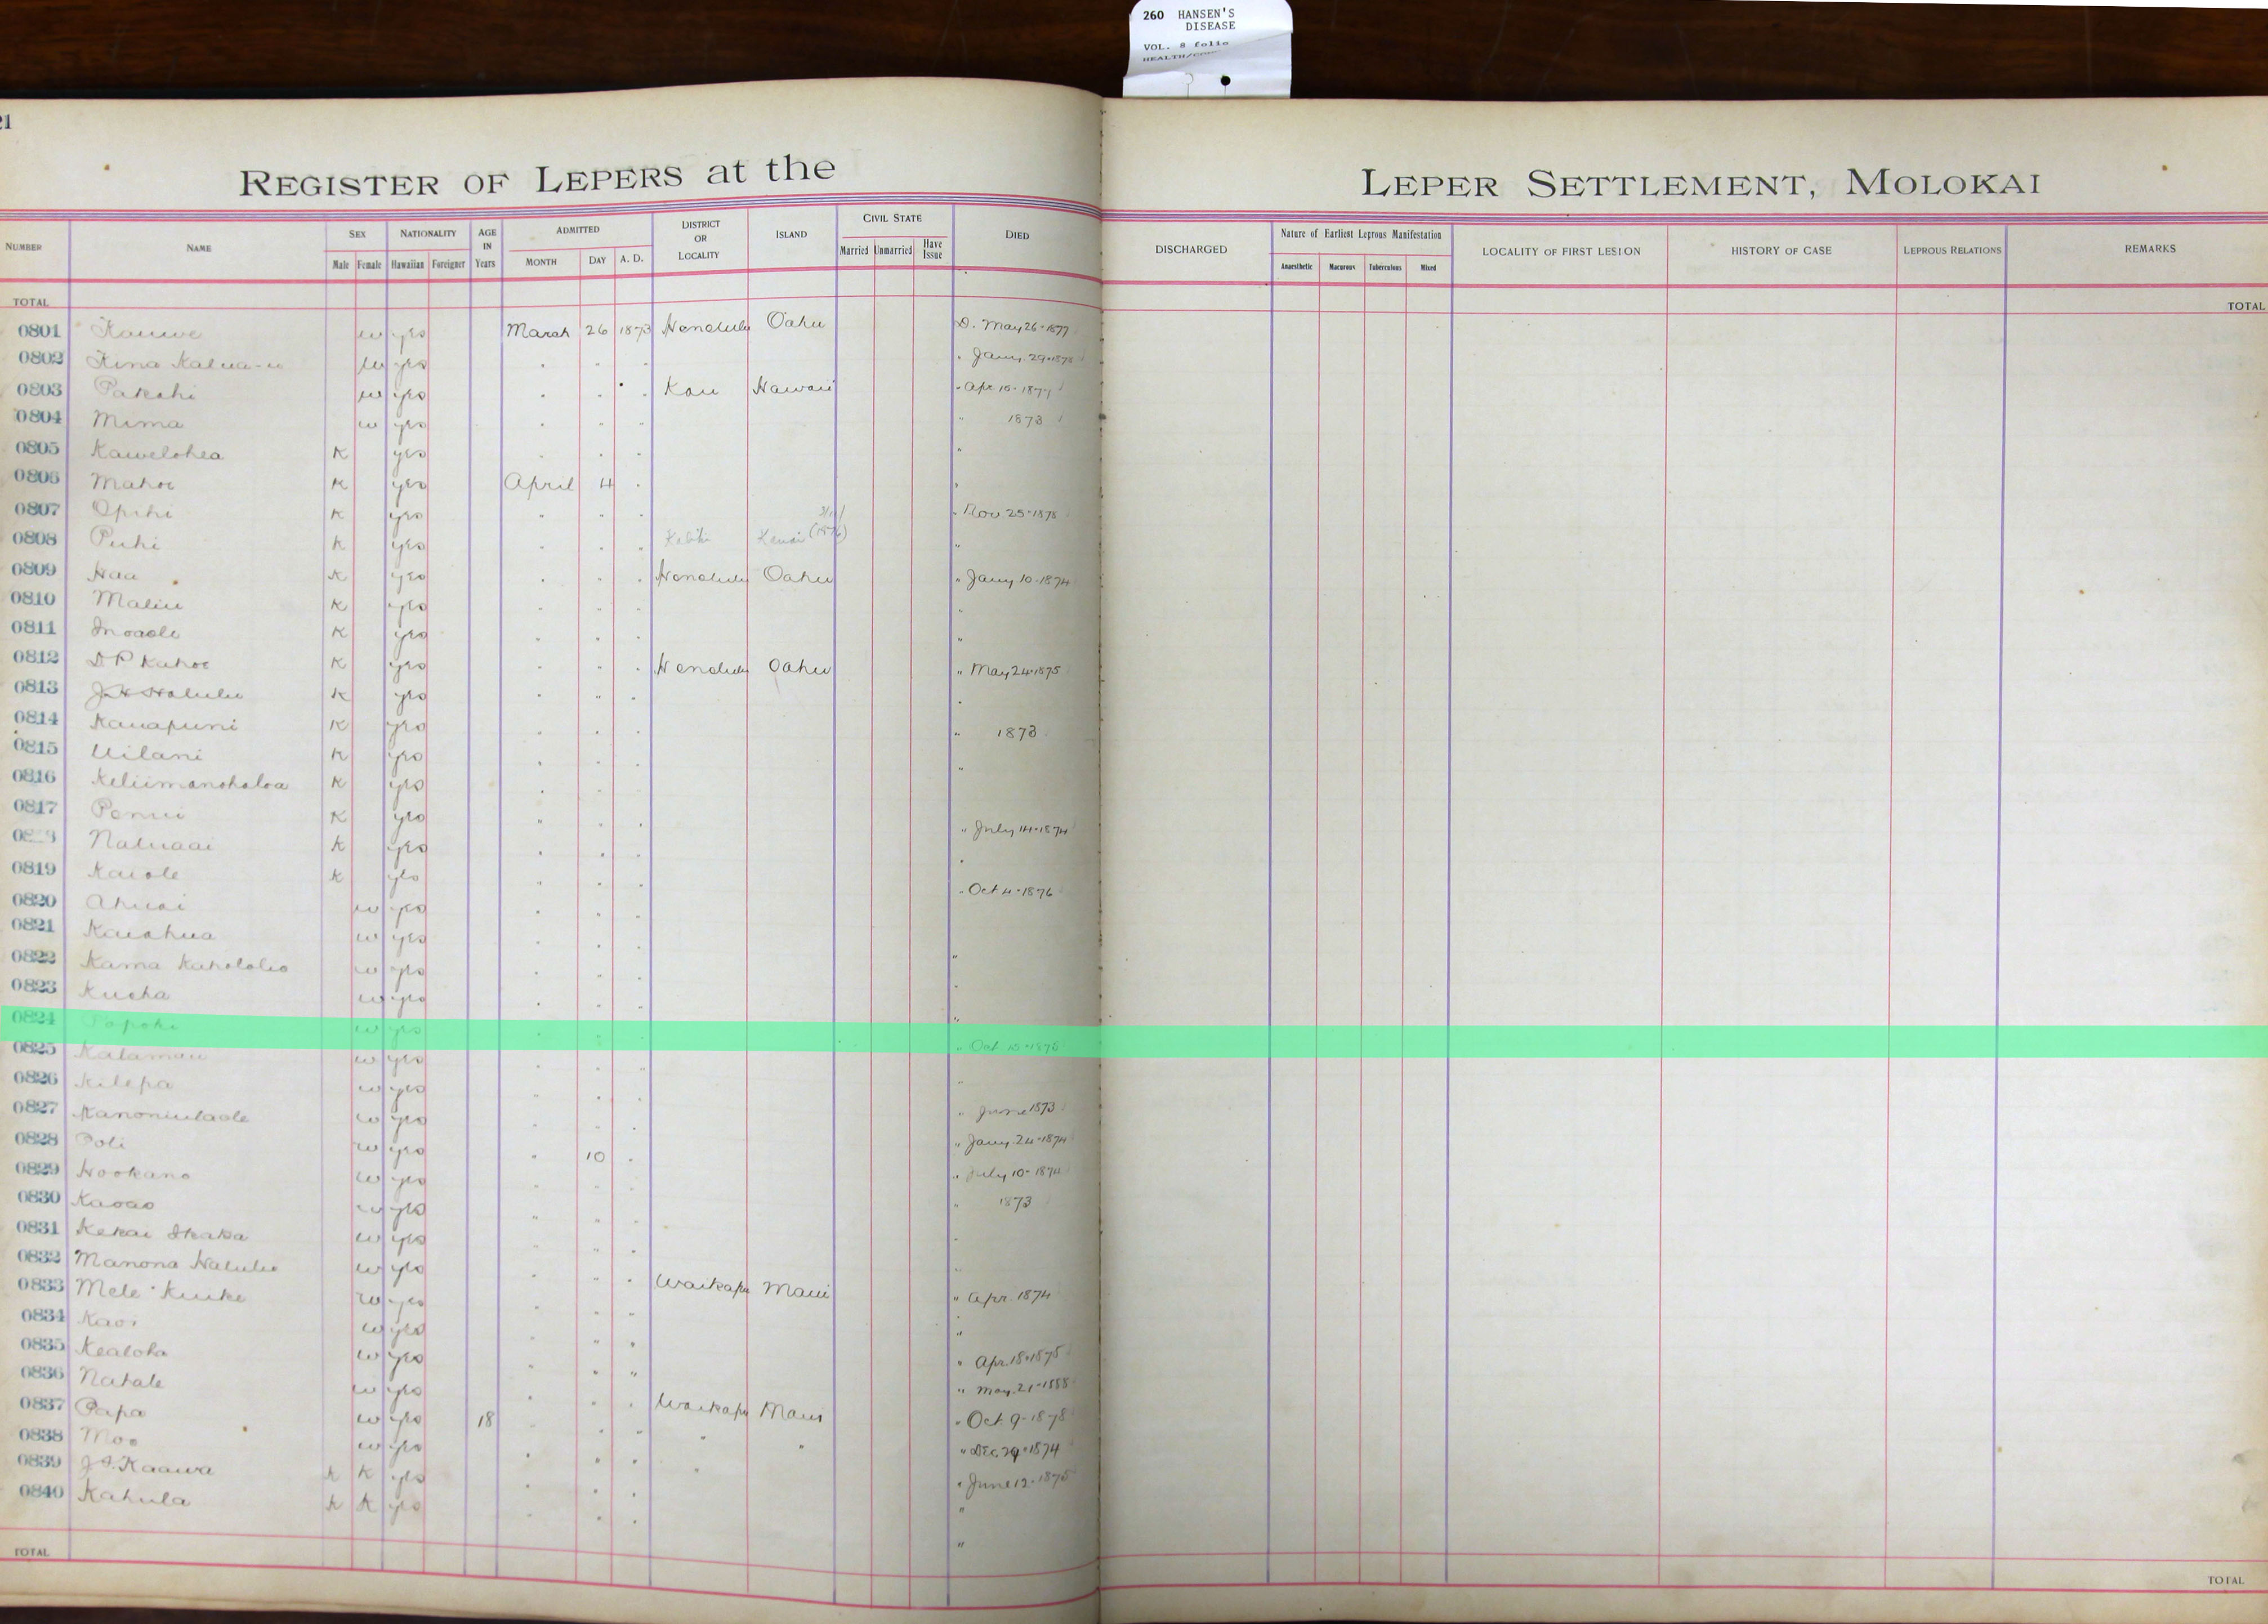 260 HANSEN'S
DISEASE
VOL. 8 folio
21
REGISTER OF LEPERS at the LEPER SETTLEMENT, MOLOKAI
NUMBER NAME SEX NATIONALITY AGE IN Years ADMITTED DISTRICT OR LOCALITY ISLAND CIVIL STATE DIED DISCHARGED Nature of Earliest Leprous Manifestation LOCALITY OF FIRST LESION HISTORY OF CASE LEPROUS RELATIONS REMARKS
Male Female Hawaiian Foreigner MONTH DAY A. D. Married Unmarried Have Issue Anaesthetic Macurous Tuberculous Mixed
TOTAL TOTAL
0801 Kauwe w yes March 26 1873 Honolulu Oahu D. May 26-1877
0802 Kina Kalua-u w yes " " " " Jany. 29-1878
0803 Pakahi w yes " " " Kau Hawaii " Apr 15-1877
0804 Mima w yes " " " " 1873
0805 Kawelohea K yes " " " "
0806 Mahoe K yes April 4 " "
0807 Opihi K yes " " " " Nov 25-1878
0808 Puhi K yes " " " Kauai (1876) "
0809 Haa K yes " " " Honolulu Oahu " Jany 10-1874
0810 Maliu K yes " " " "
0811 Inoaole K yes " " " "
0812 D P Kahoe K yes " " " Honolulu Oahu " May 24-1875
0813 J. H Halulu K yes " " " "
0814 Kauapuni K yes " " " " 1873
0815 Uilani K yes " " " "
0816 Keliimanoholoa K yes " " "
0817 Penui K yes " " " " July 14-1874
Naluaai K yes " " " "
0819 Kaiole K yes " " " " Oct 4-1876
0820 Ahuai w yes " " "
0821 Kaiahua w yes " " " "
0822 Kama Kahololio w yes " " " "
0823 Kueha w yes " " " "
0824 Popoki w yes " " " " Oct 15-1878
0825 Kalamau w yes " " " "
0826 Kilepa w yes " " " " June 1873
0827 Kanoniulaole w yes " " " " Jany. 24-1874
0828 Poli w yes " 10 " " July 10-1874
0829 Hookano w yes " " " " 1873
0830 Kaoao w yes " " " "
0831 Kekai Ikaka w yes " " " "
0832 Manona Halulu w yes " " " Waikapu Maui " Apr. 1874
0833 Mele Kuike w yes " " " "
0834 Kaoi w yes " " " " Apr. 18-1875
0835 Kealoha w yes " " " " May. 21-1888
0836 Nahale w yes " " " Waikapu Maui " Oct 9-1878
0837 Papa w yes 18 " " " " " " Dec. 29-1874
0838 Moo w yes " " " " " June 12-1875
0839 J. I. Kaawa K K yes " " " "
0840 Kahula K K yes " " " "
TOTAL TOTAL